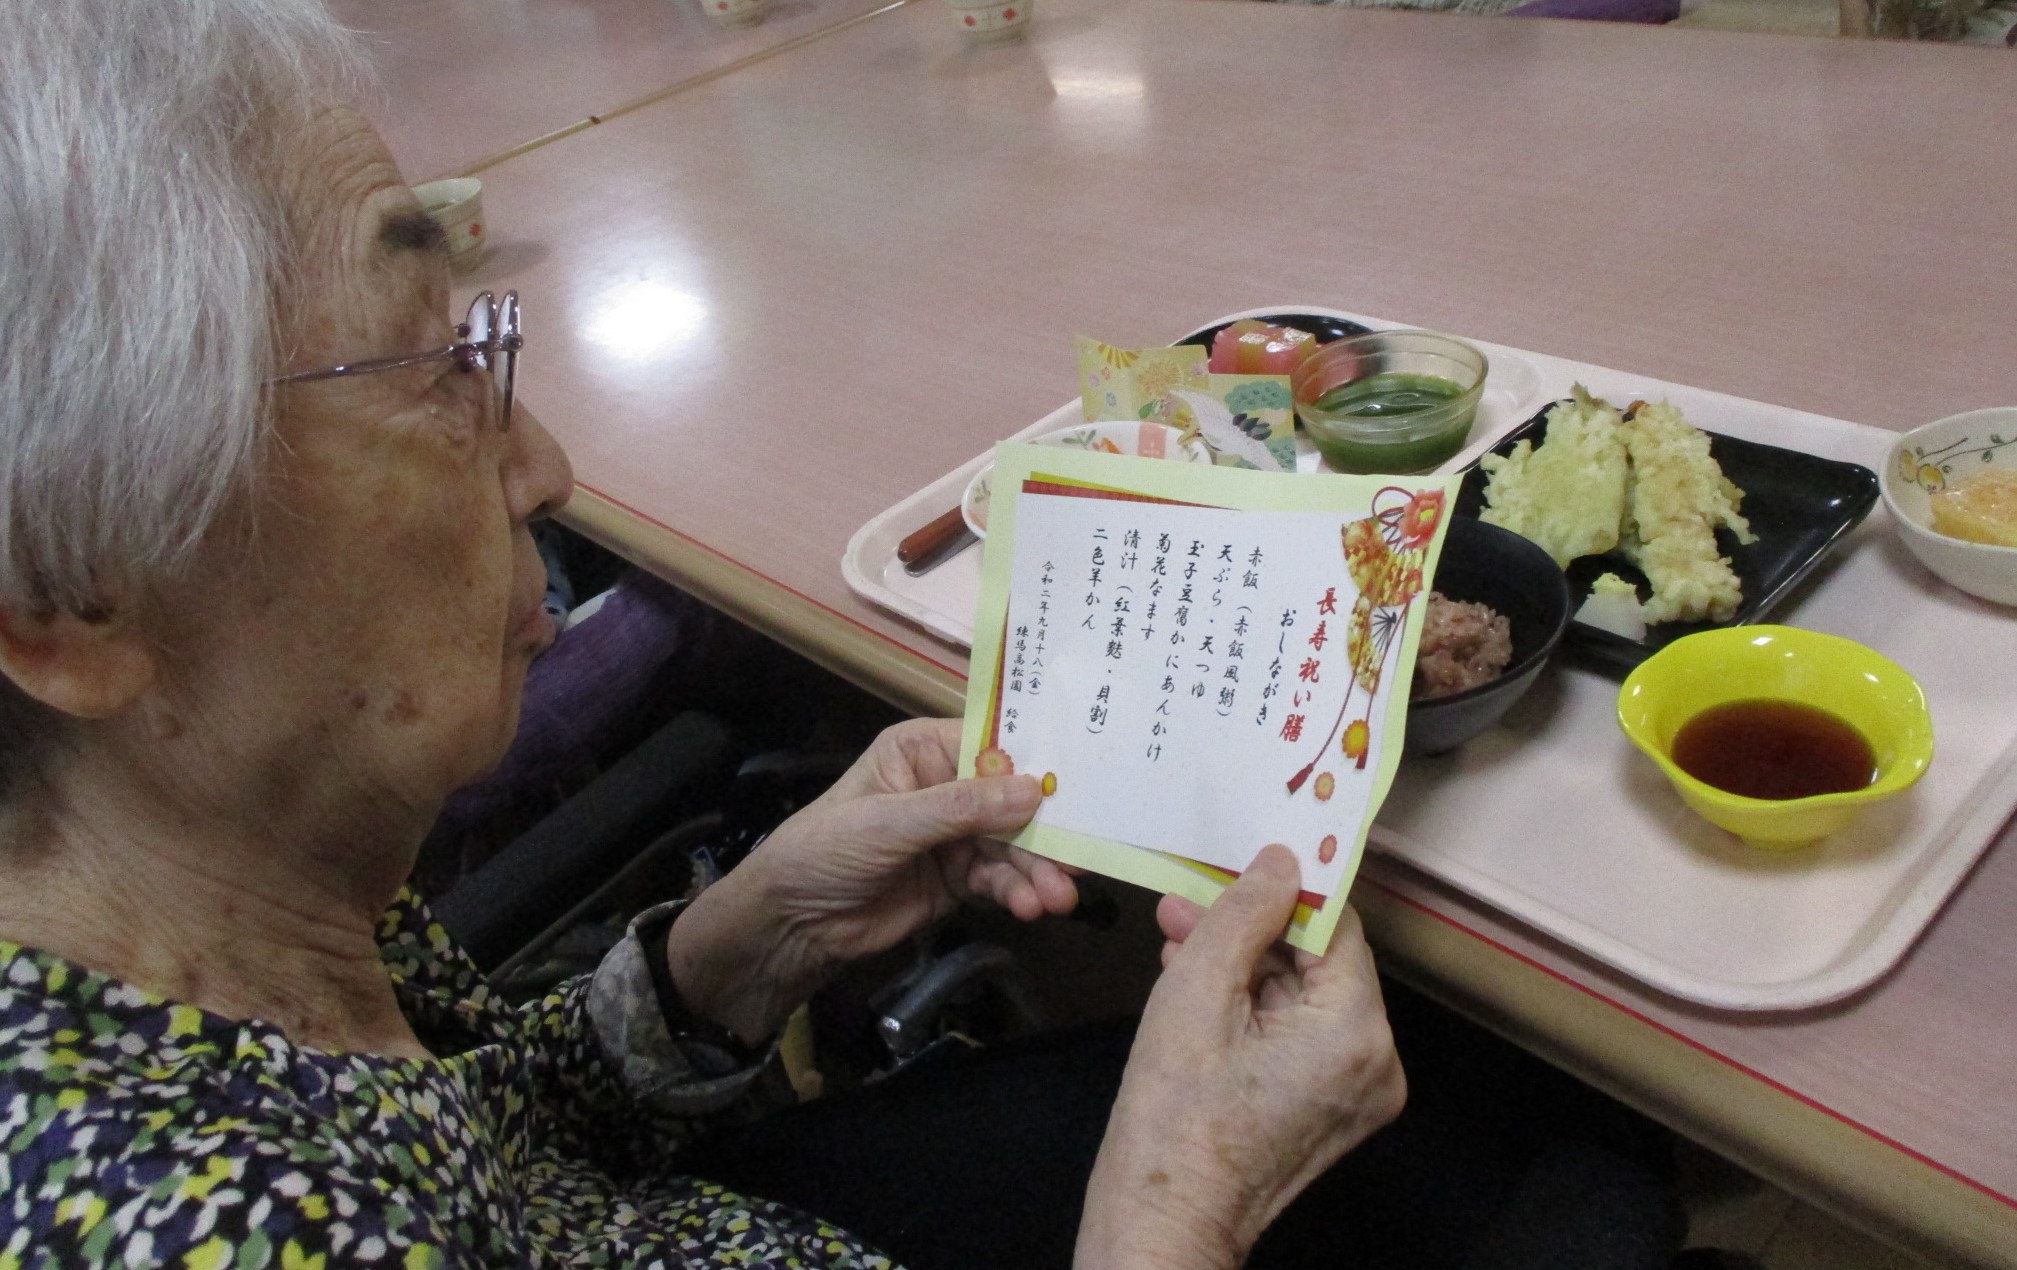 長寿祝い膳
おしながき
赤飯（赤飯風粥）
天ぷら・天つゆ
玉子豆腐かにあんかけ
菊花なます
清汁（紅葉麩・貝割）
二色羊かん
令和二年九月十八（金）
練馬高松園　給食